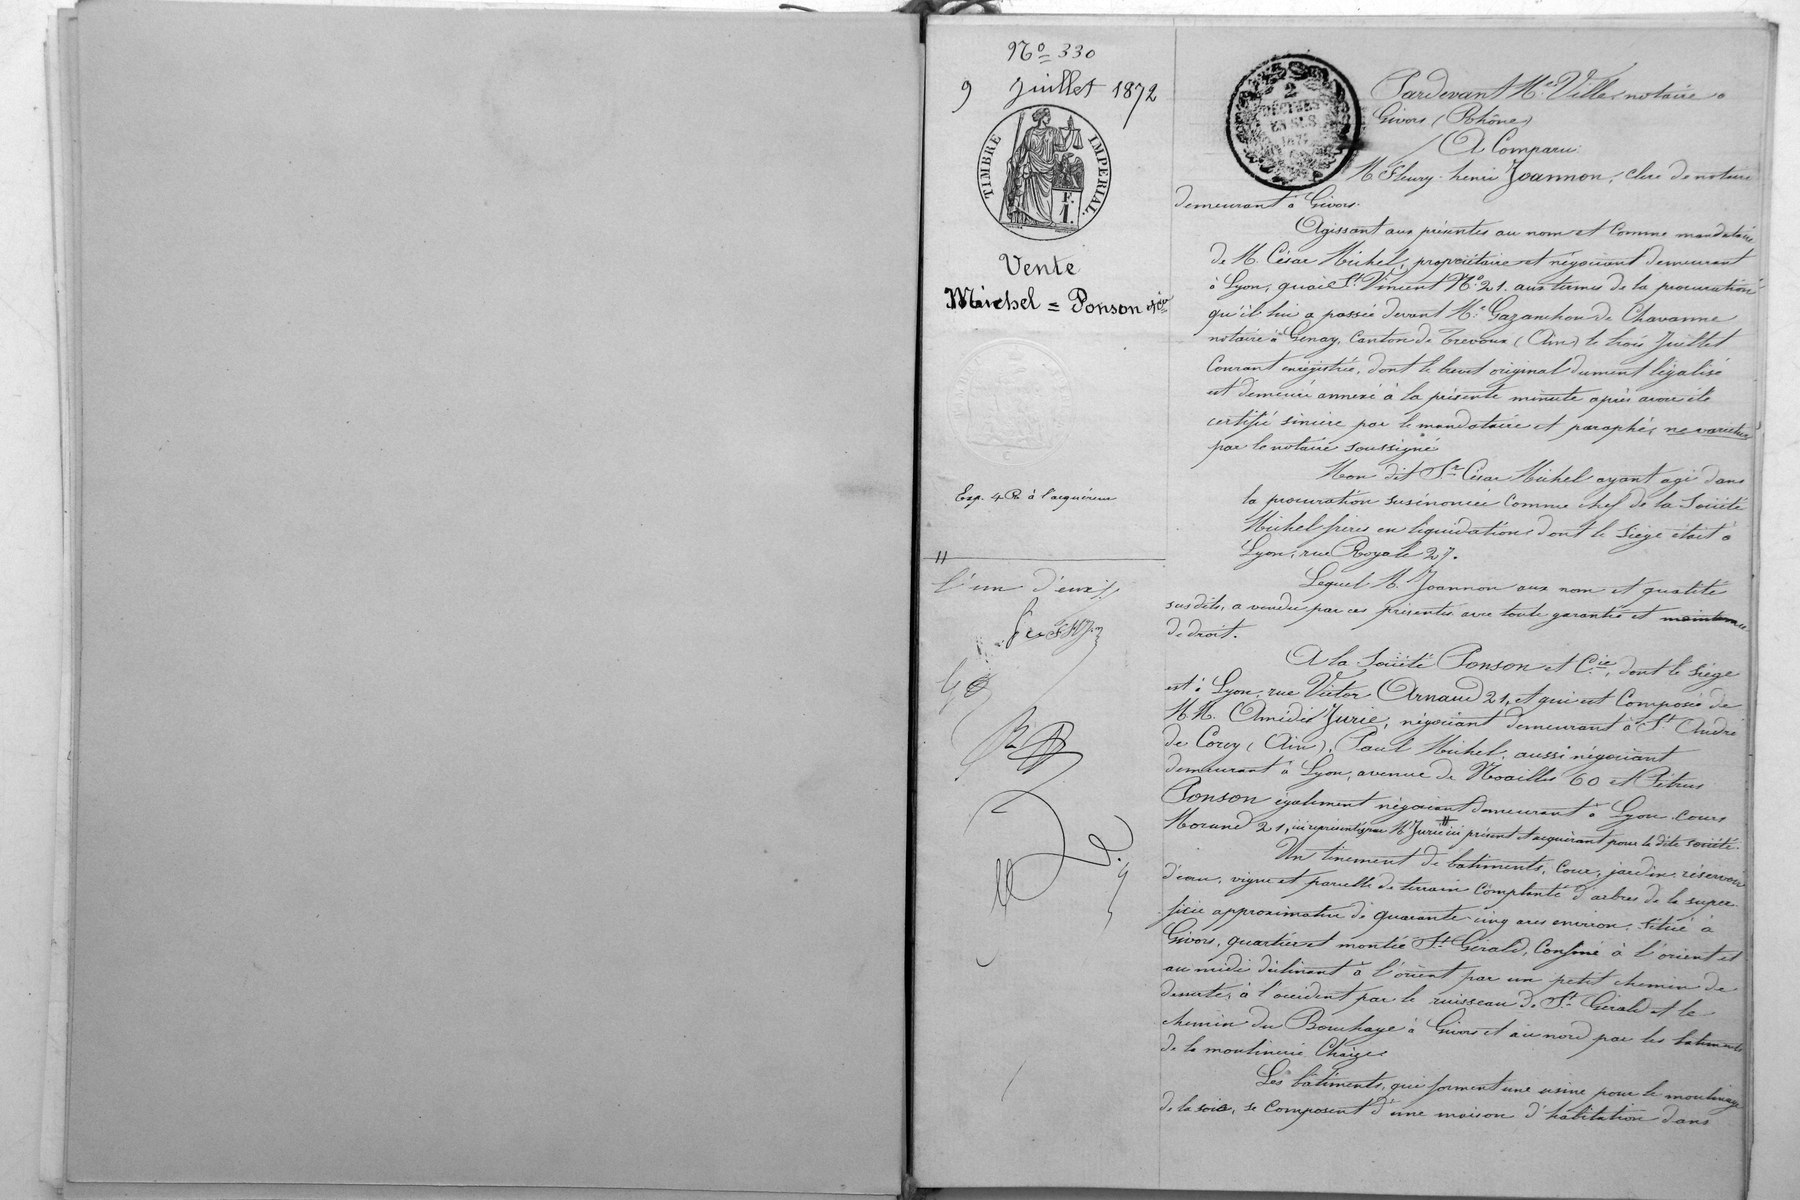 N° 330
9 Juillet 1872
TIMBRE IMPERIAL.
F.
1.
Vente
Michel = Ponson et Cie
Exp. 4 R. à l'acquéreur
l'un d'eux
2
DÉCIMES
EN SUS
Pardevant Me Ville, notaire à
Givors (Rhône)
A Comparu
M Fleury-henri Joannon, clerc de notaire
demeurant à Givors.
Agissant aux présentes au nom et comme mandataire
de M. César Michel, propriétaire et négociant demeurant
à Lyon, quai St Vincent N° 21. aux termes de la procuration
qu'il lui a passée devant Me Gazanchon de Chavanne
notaire à Genay, Canton de Trevoux (Ain) le trois Juillet
Courant enregistrée, dont le brevet original dument légalisé
est demeuré annexé à la présente minute après avoir été
certifié sincère par le mandataire et paraphé, ne varietur
par le notaire soussigné
Mon dit Sr César Michel ayant agi dans
la procuration susénoncée comme chef de la Société
Michel frères en liquidation dont le siège était à
Lyon, rue Royale 27.
Lequel M. Joannon aux nom et qualité
susdits, a vendu par ces présentes avec toute garantie et maintenue
de droit.
A la Société Ponson et Cie, dont le siège
est à Lyon, rue Victor Arnaud 21, et qui est Composée de
M.M. Amédée Jurie, négociant demeurant à St André
de Corcy (Ain), Paul Michel, aussi négociant
demeurant à Lyon, avenue de Noailles 60 et Pétrus
Ponson également négociant demeurant à Lyon cours
Morand 21, ici représentés par M Jurie // ici présent et acquérant pour la dite société.
Un tinement de batiments, Cour, jardin, réservoir
d'eau, vigne et parcelle de terrain complanté d'arbres de la super-
ficie approximative de quarante-cinq ares environ, situé à
Givors, quartier et montée St Gérald, Confiné à l'orient et
au midi déclinant à l'orient par un petit chemin de
desserte, à l'occident par le ruisseau de St Gérald et le
chemin du Bouchage à Givors et au nord par les batiments
de la moulinerie Chaize
Les bâtiments, qui forment une usine pour le moulinage
de la soie, se composent d'une maison d'habitation dans